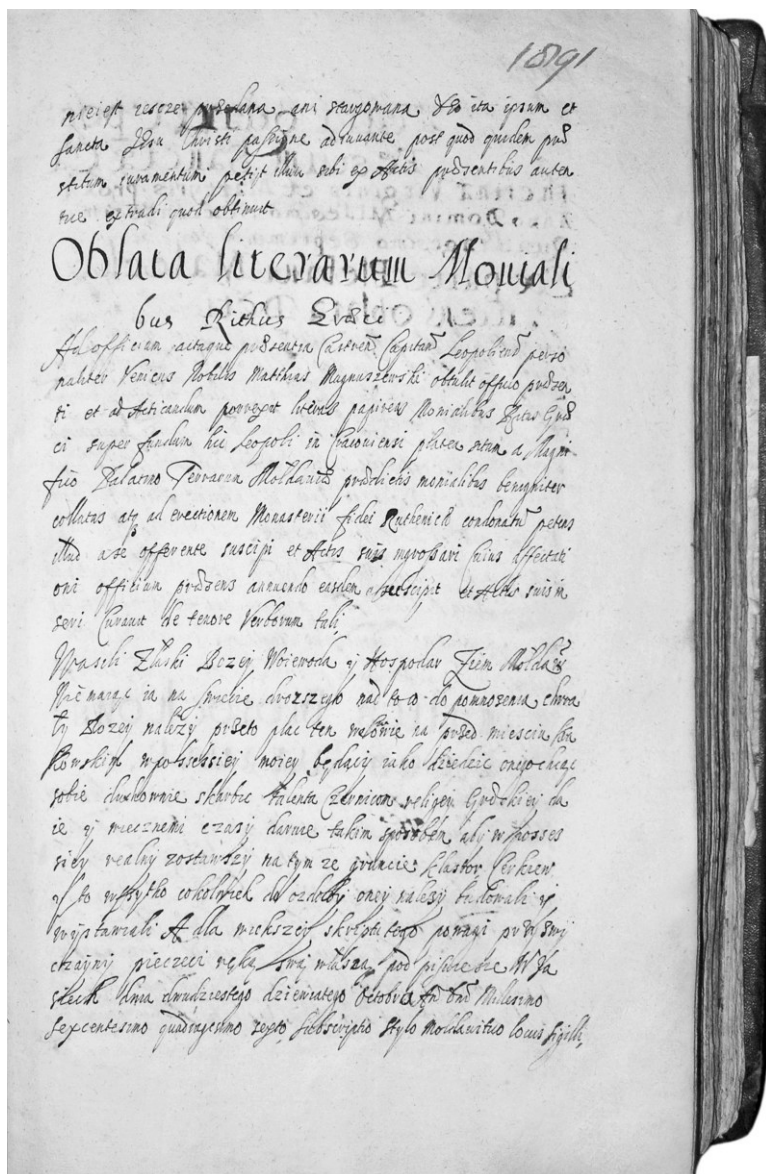 1891
nieiest zescze przedana ani stargowana Deo ita ipsum et
sancta Jesu Christi passione adiuvante post quod quidem præ
stitum juramentum petijt illud sibi ex Actis præsentibus auten
tice extradi quod obtinuit
Oblata literarum Moniali
bus Rithus Græci
Ad officium actaque præsentia Castren Capitan Leopolien perso
naliter veniens Nobilis Matthias Magnuszewski obtulit officio præsen
ti et ad Acticandum porrexit literas papireas Monialibus Ritus Græ
ci super fundum hic Leopoli in Cracoviensi platea situm a Magni
fico Palatino Terrarum Moldaviæ prædictis monialibus benigniter
collatas atq ad erectionem Monasterii fidei Ruthenicæ condonatum petens
illud a se offerente suscipi et Actis suis ingrossari Cuius affectati
oni officium præsens annuendo easdem suscipit et Actis suis in
seri Curavit de tenore Verborum tali
Wasili Z łaski Bozey Woiewoda y Hospodar Ziem Mołdaw
Nie maiąc ia na swiecie drozszego nad to co do pomnozenia chwa
ły Bozey nalezy przeto plac ten na przed miesciu Kra
kowskim w possessiey moiey będący iako dziedzic onego chcąc
sobie duchownie skarbic talenta Czernicom religiey Græckiey da
ie y wiecznemi czasy daruie takim sposobem aby w posses
siey realny zostawszy na tym ze gruncie klasztor Cerkiew
y to wszytko cokolwiek do ozdoby oney nalezy budowali y
wystawiali A dla większey skryptu tego powagi przy swy
czayny pieczeci ręką swą własną pod pisuie sie W Ja
siech dnia dwudziestego dziewiatego Octobris An Dni Millesimo
sexcentesimo quadragesimo sexto, Subscriptio stylo Moldavitico locus sigilli,